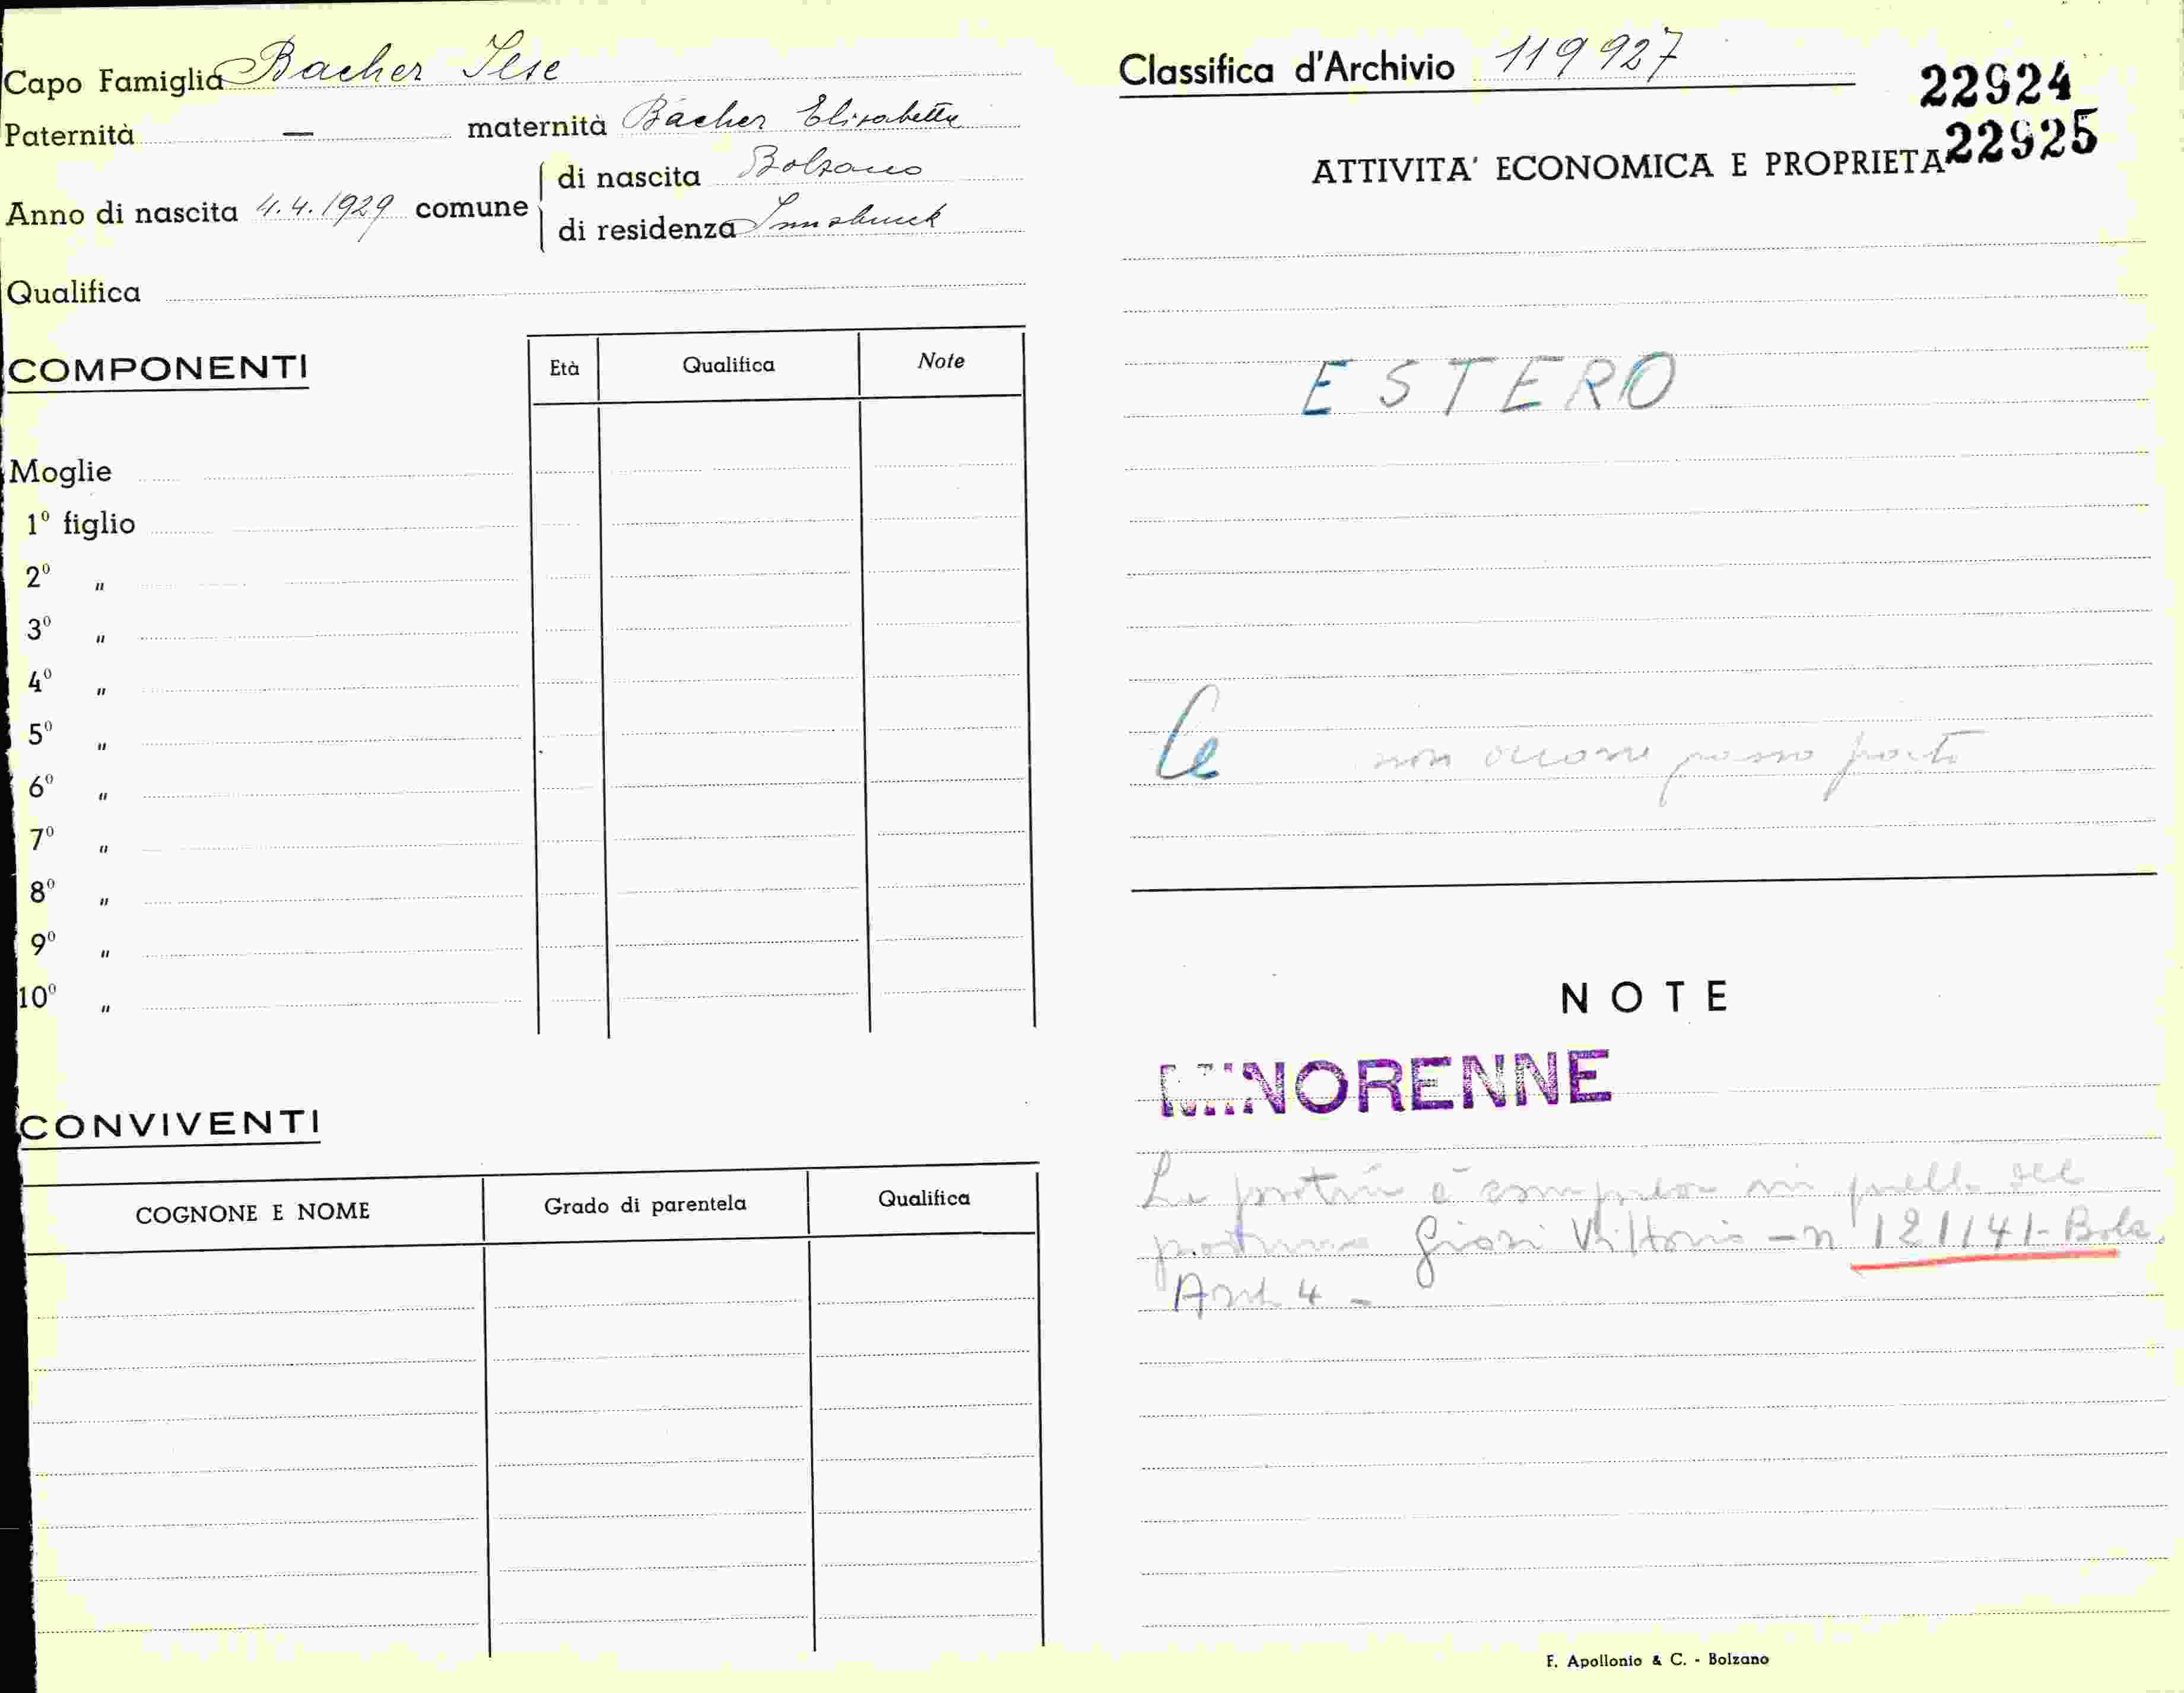 Capo Famiglia Bacher Ilse
Paternità — maternità Bacher Elisabetta
Anno di nascita 4.4.1929 comune
di nascita Bolzano
di residenza Innsbruck
Qualifica
COMPONENTI
Età Qualifica Note
Moglie
1º figlio
2º "
3º "
4º "
5º "
6º "
7º "
8º "
9º "
10º "
CONVIVENTI
COGNONE E NOME Grado di parentela Qualifica
Classifica d'Archivio 119927
22924
22925
ATTIVITA' ECONOMICA E PROPRIETA
ESTERO
non occorre passaporto
NOTE
MINORENNE
La pratica è compresa in quella del
Giosi Vittorio - n 121141- Bolz.
Art. 4 -
F. Apollonio & C. - Bolzano